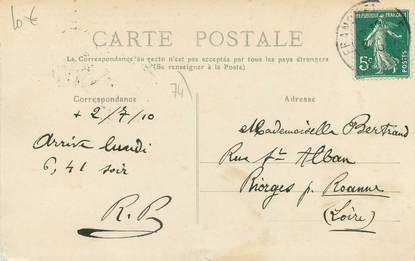 10€
CARTE POSTALE
La Correspondance au recto n'est pas acceptée par tous les pays étrangers
(Se renseigner à la Poste)
REPUBLIQUE FRANÇAISE
5c
74
Correspondance
Adresse
+ 2/7/10
Arrive lundi
6,41 soir
R.B
Mademoiselle Bertrand
Rue St Alban
Riorges p. Roanne
(Loire)